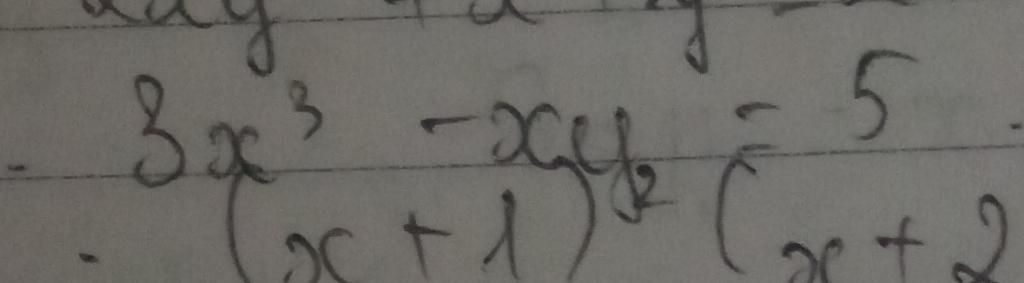 3x³ - xy = 5
(x + 1)² (x + 2